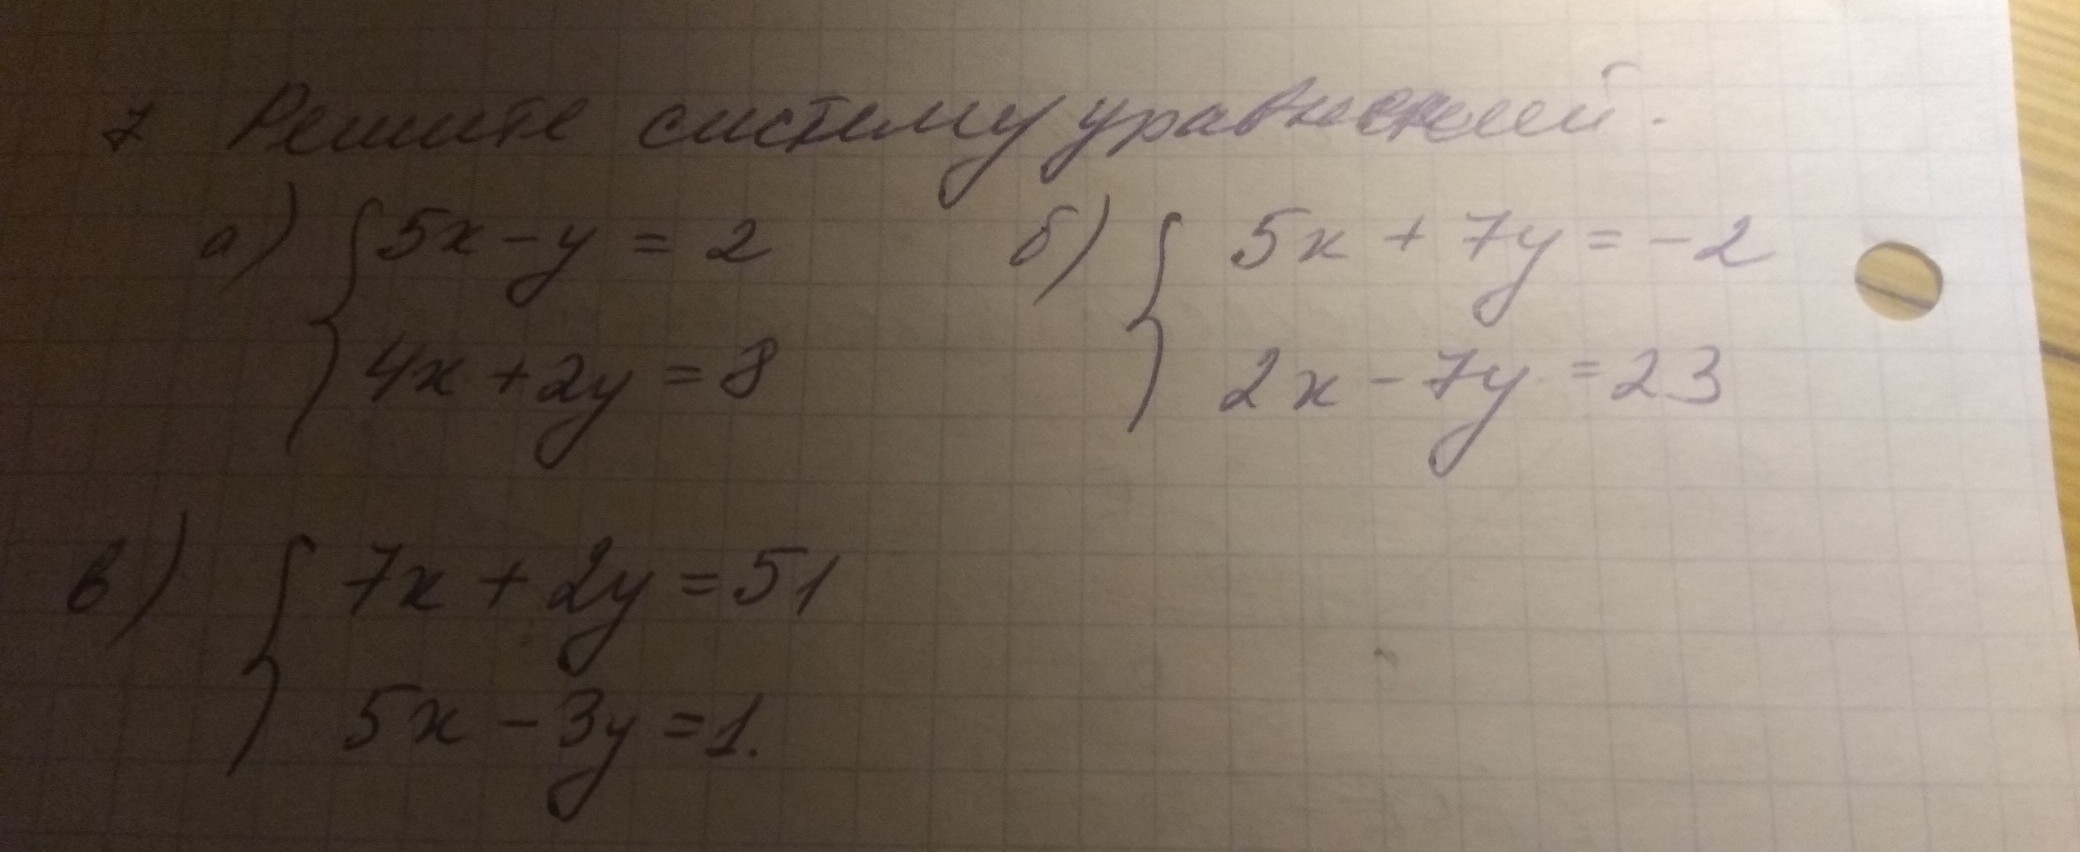 7 Решите систему уравнений.
а) { 5x - y = 2
4x + 2y = 8
б) { 5x + 7y = -2
2x - 7y = 23
в) { 7x + 2y = 51
5x - 3y = 1.